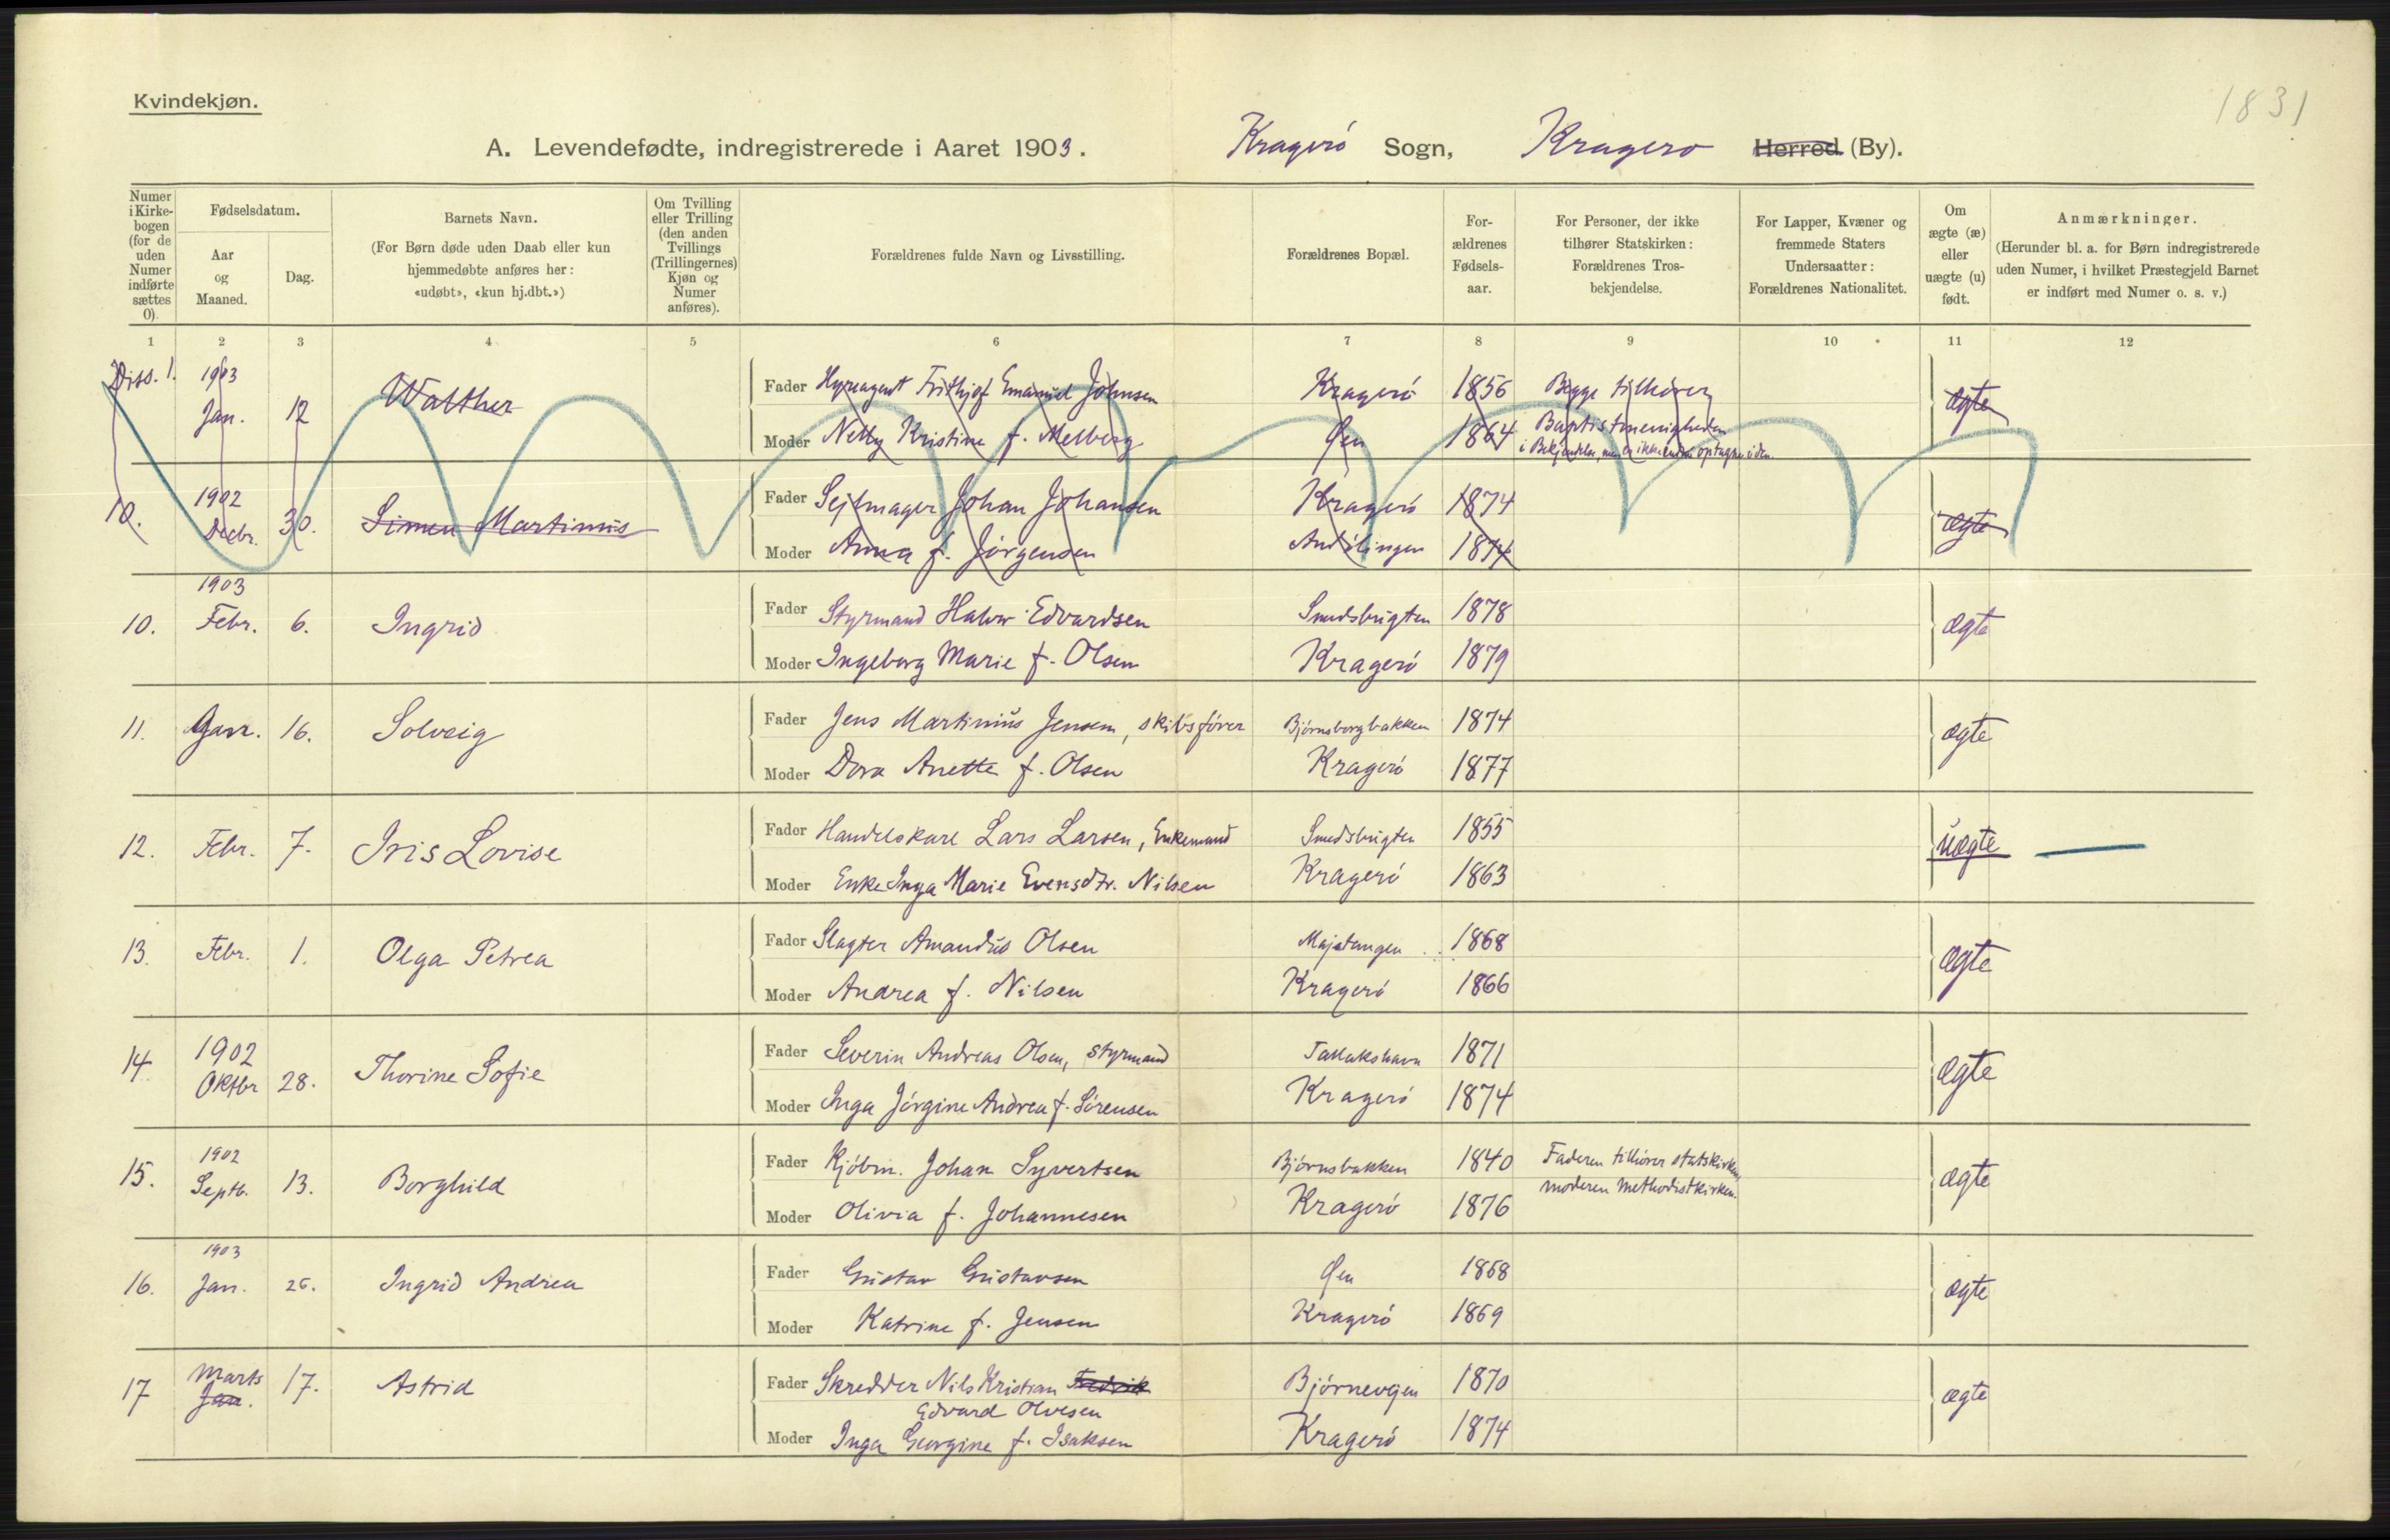 1831
Kvindekjøn.
A. Levendefødte, indregistrerede i Aaret 1903. Kragerö Sogn, Kragerø Herred (By).
Numer i Kirkebogen (for de uden Numer indførte sættes 0).
Fødselsdatum.
Aar og Maaned.
Dag.
Barnets Navn.
(For Børn døde uden Daab eller kun hjemmedøbte anføres her: «udøbt», «kun hj.dbt.»)
Om Tvilling eller Trilling (den anden Tvillings (Trillingernes) Kjøn og Numer anføres).
Forældrenes fulde Navn og Livsstilling.
Forældrenes Bopæl.
Forældrenes Fødselsaar.
For Personer, der ikke tilhører Statskirken: Forældrenes Trosbekjendelse.
For Lapper, Kvæner og fremmede Staters Undersaatter: Forældrenes Nationalitet.
Om ægte (æ) eller uægte (u) født.
Anmærkninger.
(Herunder bl. a. for Børn indregistrerede uden Numer, i hvilket Præstegjeld Barnet er indført med Numer o. s. v.)
1 2 3 4 5 6 7 8 9 10 11 12
Diss. 1. 1903 Jan. 12 Walther
Fader Hyreagent Frithjof Emanuel Johnsen Kragerö 1856 Begge tilhörer
Moder Nelly Kristine f. Melberg Øen 1864 Baptistmenigheden
ægte
10. 1902 Decbr. 30. Simen Martinus
Fader Sejlmager Johan Johansen Kragerö 1874
Moder Anna f. Jörgensen 1874
ægte
10. 1903 Febr. 6. Ingrid
Fader Styrmand Halvor Edvardsen Smedsbugten 1878
Moder Ingeborg Marie f. Olsen Kragerö 1879
ægte
11. Jan. 16. Solveig
Fader Jens Martinius Jensen, skibsförer Björnsborgbakken 1874
Moder Dora Anette f. Olsen Kragerö 1877
ægte
12. Febr. 7. Iris Lovise
Fader Handelskarl Lars Larsen, Enkemand Smedsbugten 1855
Moder Enke Inga Marie Evensdtr. Nilsen Kragerö 1863
uægte
13. Febr. 1. Olga Petrea
Fader Slagter Amandus Olsen Majatangen 1868
Moder Andrea f. Nilsen Kragerö 1866
ægte
14. 1902 Oktbr 28. Thorine Sofie
Fader Severin Andreas Olsen, styrmand Tallakshavn 1871
Moder Inga Jörgine Andrea f. Sörensen Kragerö 1874
ægte
15. 1902 Septb. 13. Borghild
Fader Kjöbm. Johan Syvertsen Björnsbakken 1840 Faderen tilhörer statskirken,
Moder Olivia f. Johannesen Kragerö 1876 moderen Methodistkirken.
ægte
16. 1903 Jan. 26. Ingrid Andrea
Fader Gustav Gustavsen Øen 1868
Moder Katrine f. Jensen Kragerö 1869
ægte
17 Marts Jan. 17. Astrid
Fader Skredder Nils Kristian Fredrik Björnevejen 1870
Edvard Olvesen
Moder Inga Georgine f. Isaksen Kragerö 1874
ægte